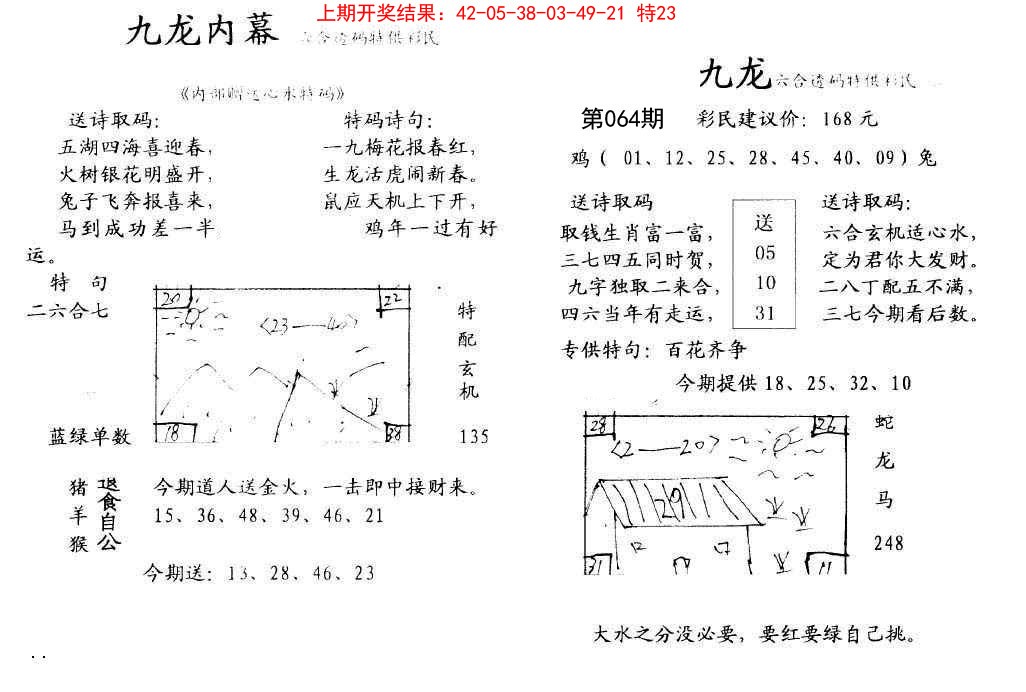 上期开奖结果：42-05-38-03-49-21 特23
九龙内幕 六合透码特供彩民
《内部赠送心水特码》
送诗取码：
五湖四海喜迎春，
火树银花明盛开，
兔子飞奔报喜来，
马到成功差一半
运。
特码诗句：
一九梅花报春红，
生龙活虎闹新春。
鼠应天机上下开，
鸡年一过有好
特 句
二六合七
蓝绿单数
20
22
<23——40>
18
38
特
配
玄
机
135
猪
羊
猴
退
食
自
公
今期道人送金火，一击即中接财来。
15、36、48、39、46、21
今期送：13、28、46、23
九龙六合透码特供彩民
第064期 彩民建议价：168元
鸡（ 01、12、25、28、45、40、09）兔
送诗取码
取钱生肖富一富，
三七四五同时贺，
九字独取二来合，
四六当年有走运，
送
05
10
31
送诗取码：
六合玄机适心水，
定为君你大发财。
二八丁配五不满，
三七今期看后数。
专供特句：百花齐争
今期提供18、25、32、10
28
<2——20>
29
31
11
蛇
龙
马
248
大水之分没必要，要红要绿自己挑。